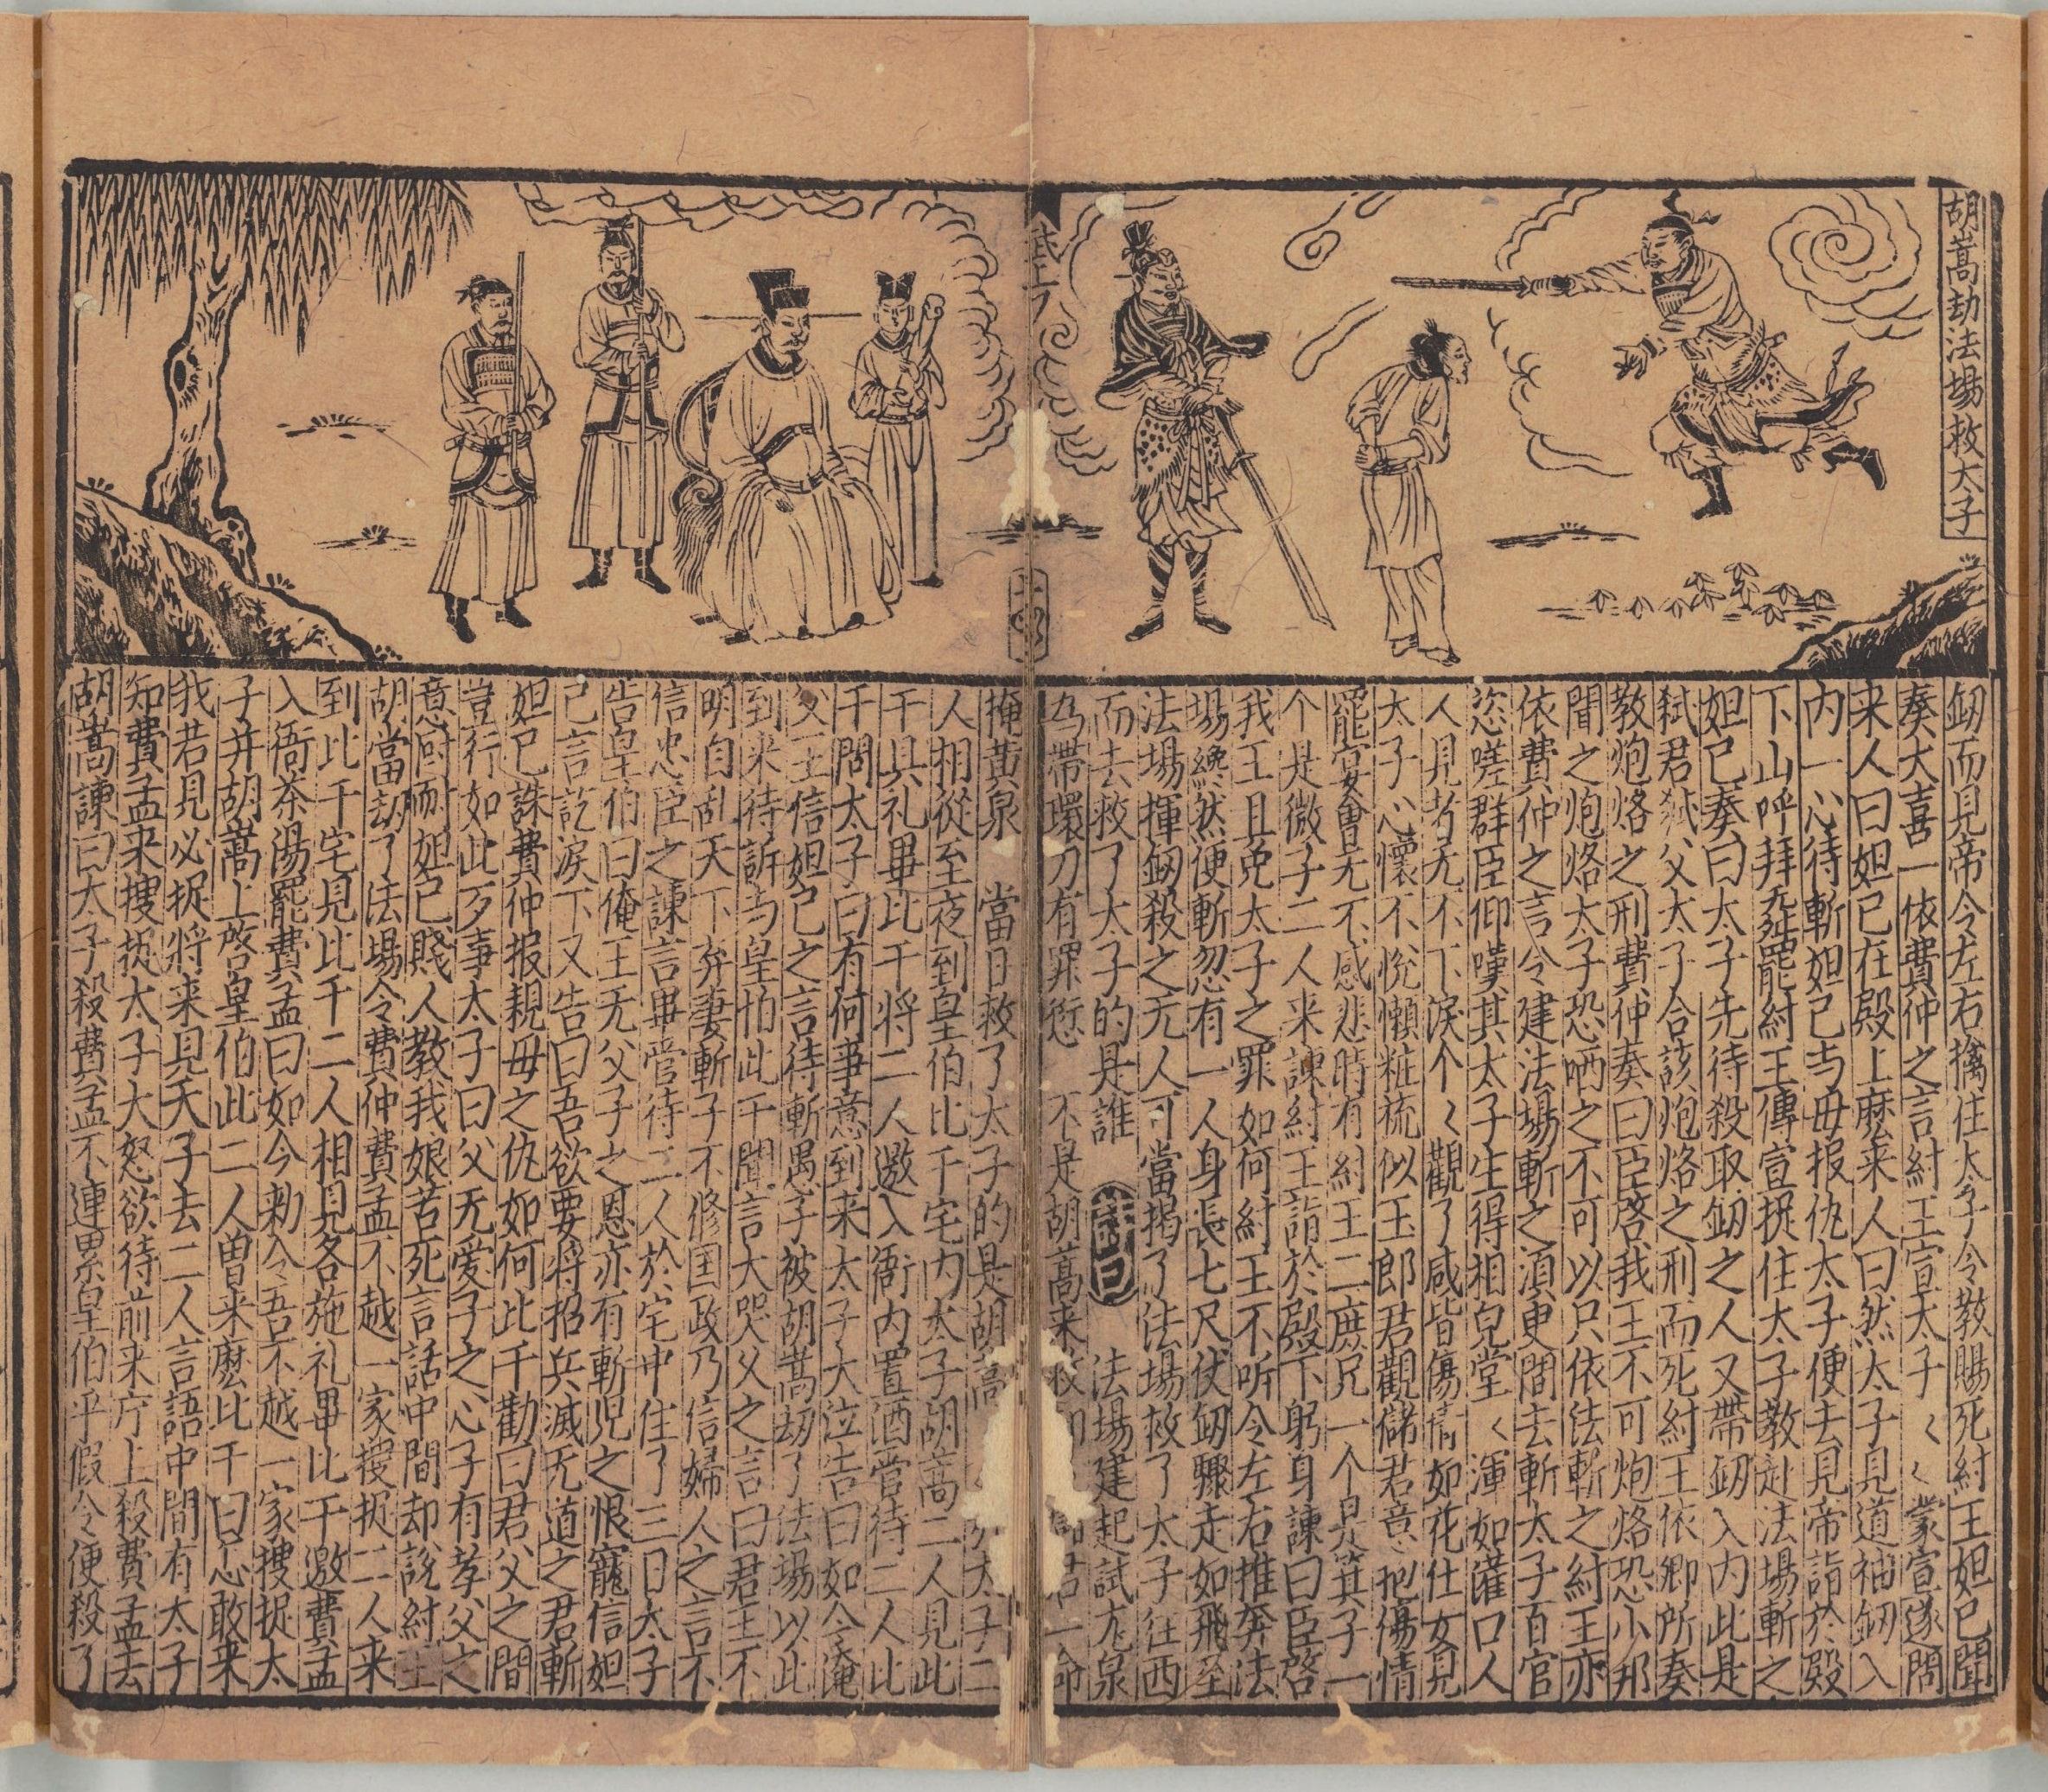 胡嵩劫法場救太子
劔而見帝令左右擒住太子令教賜死紂王妲己聞
奏大喜一依費仲之言紂王宣太子〱〱蒙宣遂問
来人曰妲己在殿上麽来人曰然太子見道袖劔入
内一心待斬妲己与母报仇太子便去見帝詣於殿
下山呼拜舞罷紂王傳宣捉住太子教赴法場斬之
妲己奏曰太子先待殺取劔之人又帶劔入内此是
弒君弒父太子合該炮烙之刑而死紂王依卿所奏
教炮烙之刑費仲奏曰臣啓我王不可炮烙恐小邦
聞之炮烙太子恐哂之不可以只依法斬之紂王亦
依費仲之言令建法場斬之湏更間去斬太子百官
恣嗟群臣仰嘆其太子生得相皃堂〱渾如灌口人
人見者无不下淚个〱觀了咸皆傷情如花仕女見
太子心懷不悅懶粧梳似玉郎君觀儲君意把傷情
罷宴會无不感悲時有紂王二庶兄一个是箕子一
个是微子二人来諫紂王詣於殿下躬身諫曰臣啓
我王且免太子之罪如何紂王不听令左右推奔法
場纔然便斬忽有一人身長七尺仗劔驟走如飛至
法場揮劔殺之无人可當揭了法場救了太子往西
而去救了太子的是誰　詩曰　法場建起試尨泉
為帶環刀有罪愆　不是胡嵩来救　一命
掩黃泉　當日救了太子的是胡嵩　太子二
人相從至夜到皇伯比干宅内太子胡嵩二人見此
干具礼畢比干將二人邀入衙内置酒管待二人比
干問太子曰有何事意到来太子大泣告曰如今俺
父王信妲己之言待斬愚子被胡嵩刼了法場以此
到来待訴与皇伯比干聞言大哭父之言曰君王不
明自乱天下弃妻斬子不修国政乃信婦人之言不
信忠臣之諫言畢管待二人於宅中住了三日太子
告皇伯曰俺王无父子之恩亦有斬児之恨寵信妲
己言訖淚下又告曰吾欲要將招兵滅无道之君斬
妲己誅費仲报親母之仇如何比干勸曰君父之間
豈行如此歹事太子曰父无爱子之心子有孝父之
意尀耐妲己賤人教我娘苦死言話中間却說紂王
胡當劫了法場令費仲費孟不越一家搜捉二人来
到比干宅見比干二人相見各施礼畢比干邀費孟
入衙茶湯罷費孟曰如今勅令吾不越一家搜捉太
子并胡嵩上啓皇伯此二人曾来麽比干曰怎敢来
我若見必捉將来見天子去二人言語中間有太子
知費孟来搜捉太子大怒欲待前来庁上殺費孟去
胡嵩諫曰太子殺費孟不連累皇伯乎假令便殺了